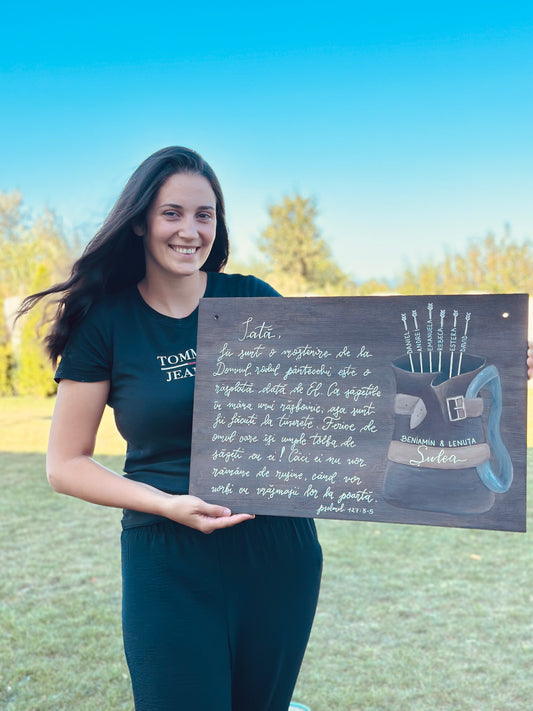 TOMM
JEAN
Iată,
fii sunt o moștenire de la
Domnul, rodul pântecelui este o
răsplată dată de El. Ca săgețile
în mâna unui războinic, așa sunt
fii făcuți la tinerețe. Ferice de
omul care își umple tolba de
săgeți cu ei! Căci ei nu vor
rămâne de rușine, când vor
vorbi cu vrăjmașii lor la poartă.
psalmul 127:3-5
DANIEL
ANDREI
EMANUELA
REBECA
ESTERA
DAVID
BENIAMIN & LENUTA
Sulea